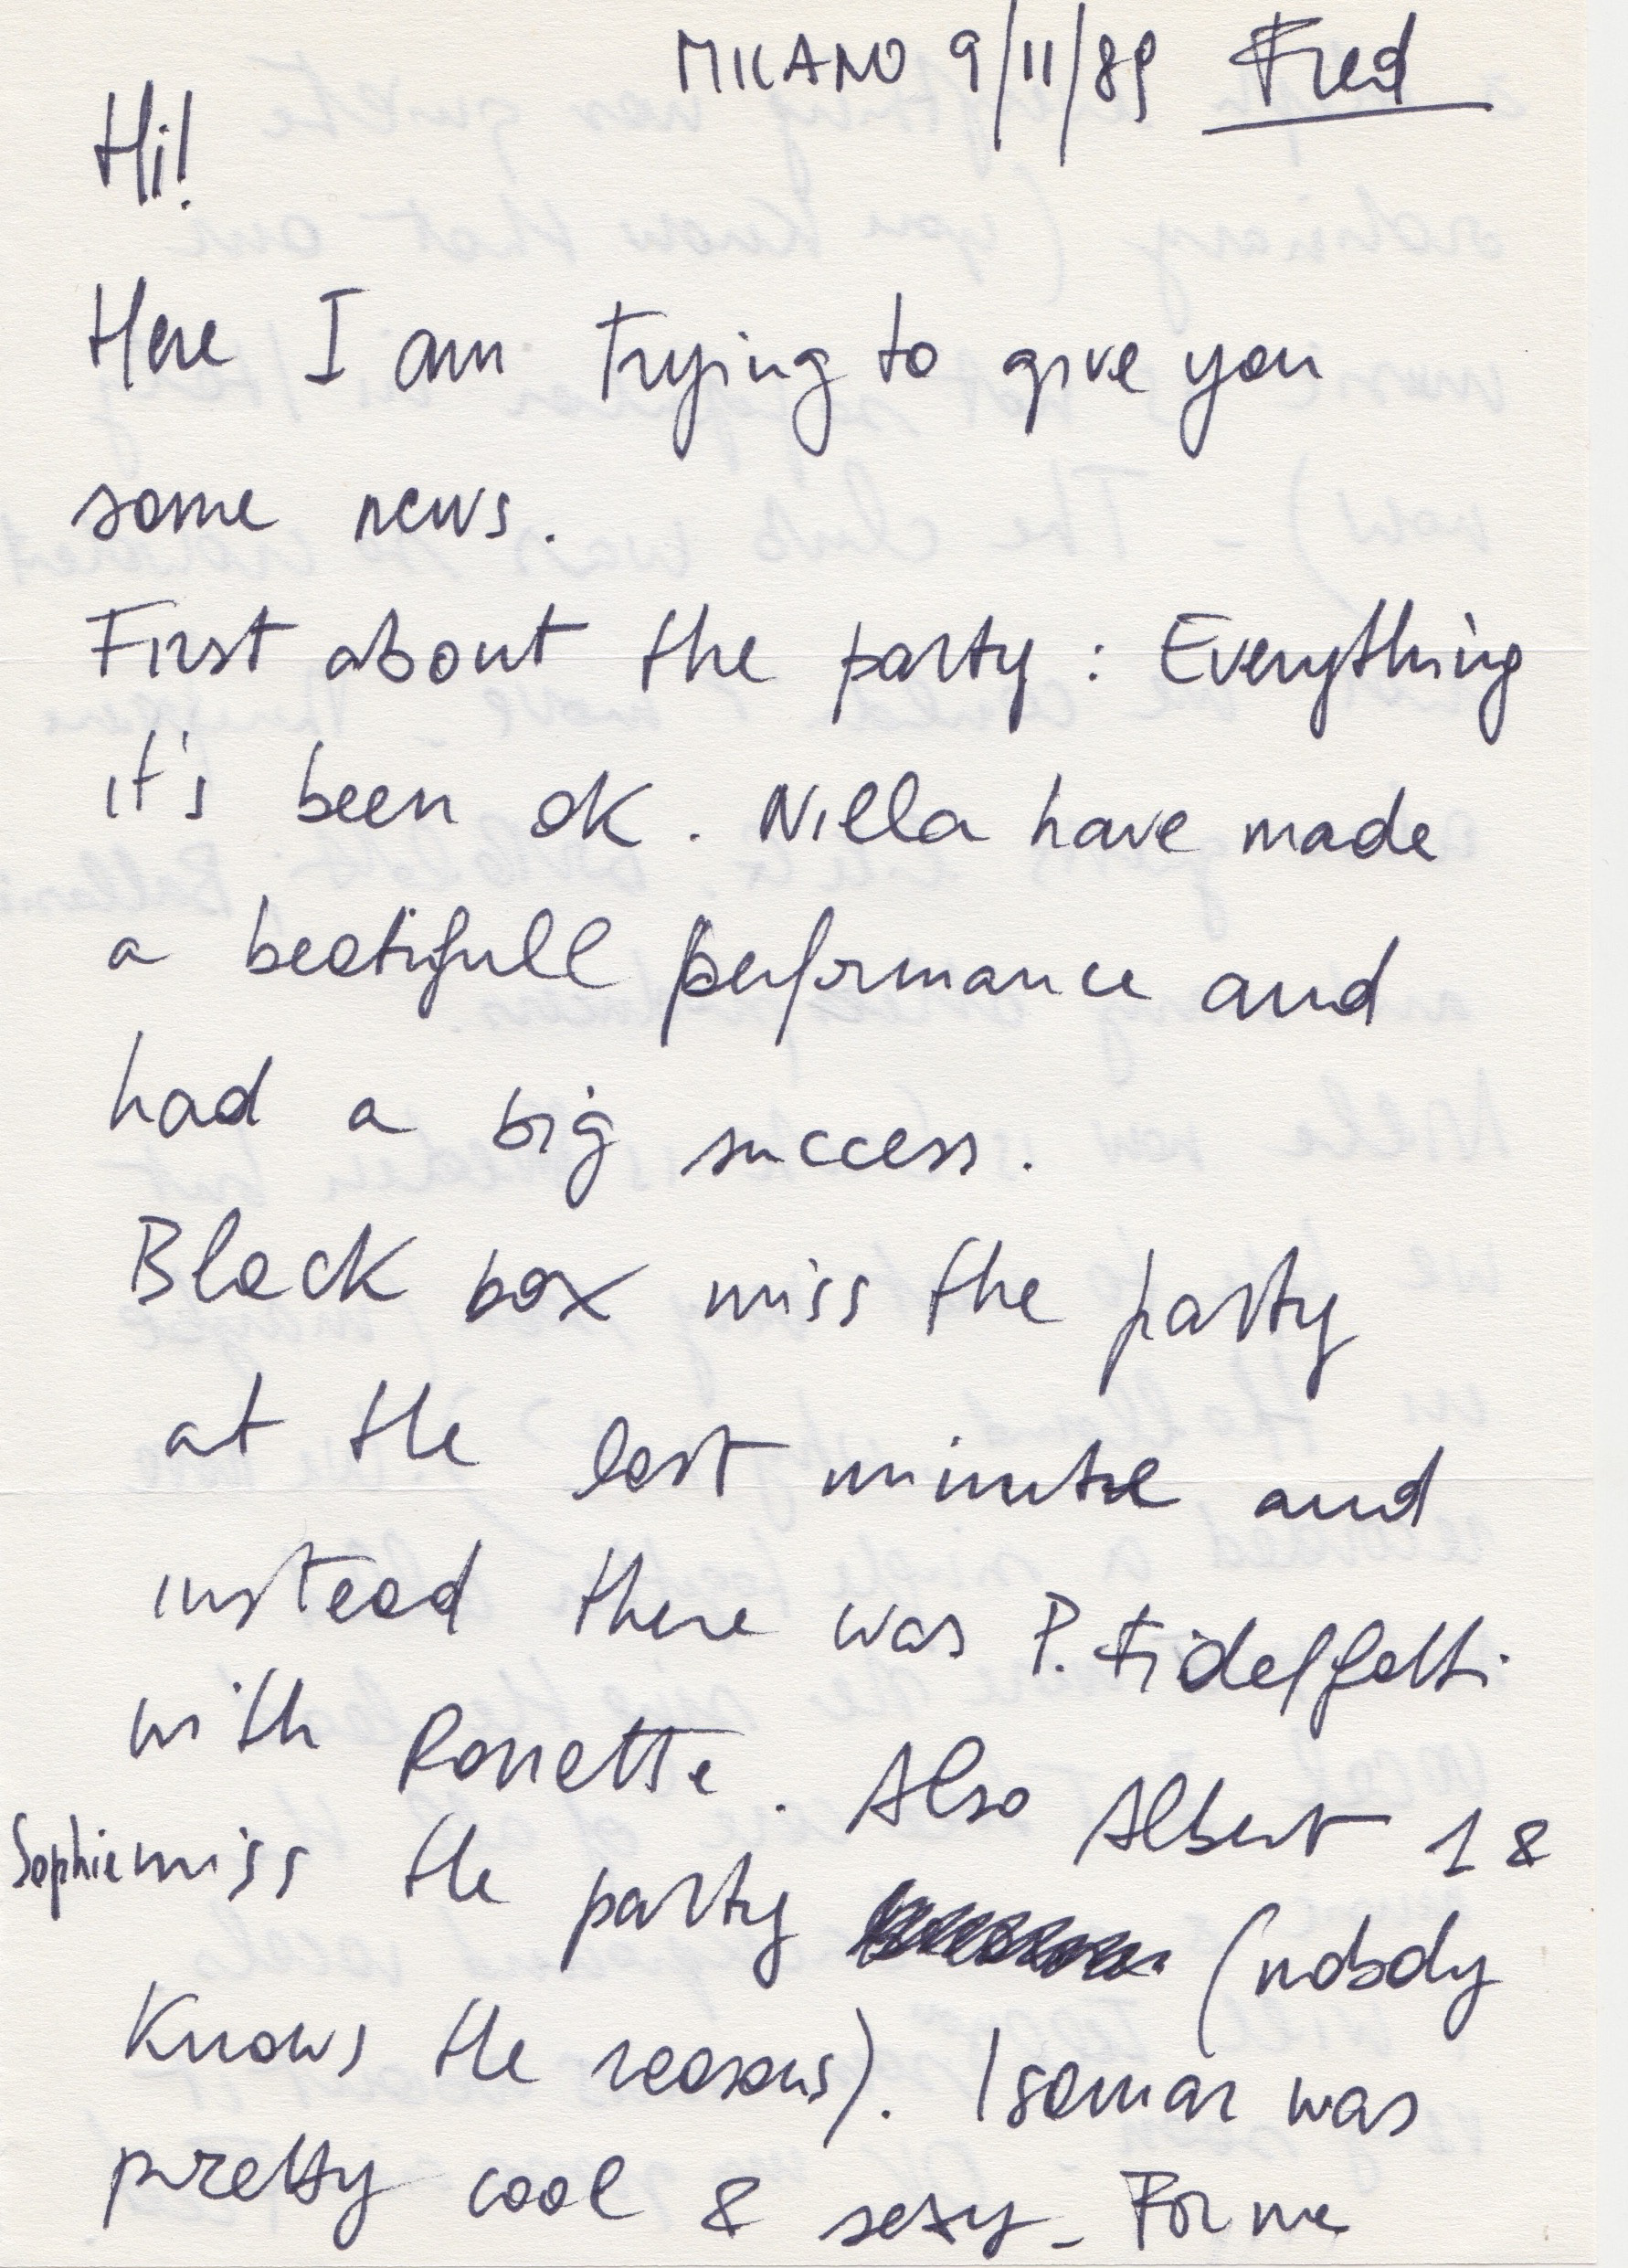 MILANO 9/11/89 Fred
Hi!
Here I am trying to give you
some news.
First about the party : Everything
it's been ok. Nilla have made
a beatifull performance and
had a big success.
Black box miss the party
at the last minute and
instead there was P. Fidelfatti
with Ronette. Also Albert 1 &
Sophie miss the party (nobody
knows the reasons). Isomar was
pretty cool & sexy - For me